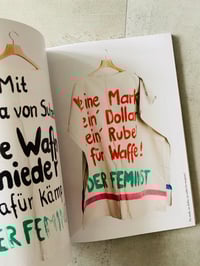 Mit
a von Su
e Waffe
nieder
dafür kämp
DER FEMINI
keine Mark
ein' Dollar
ein' Rubel
für Waffe!
DER FEMINIST